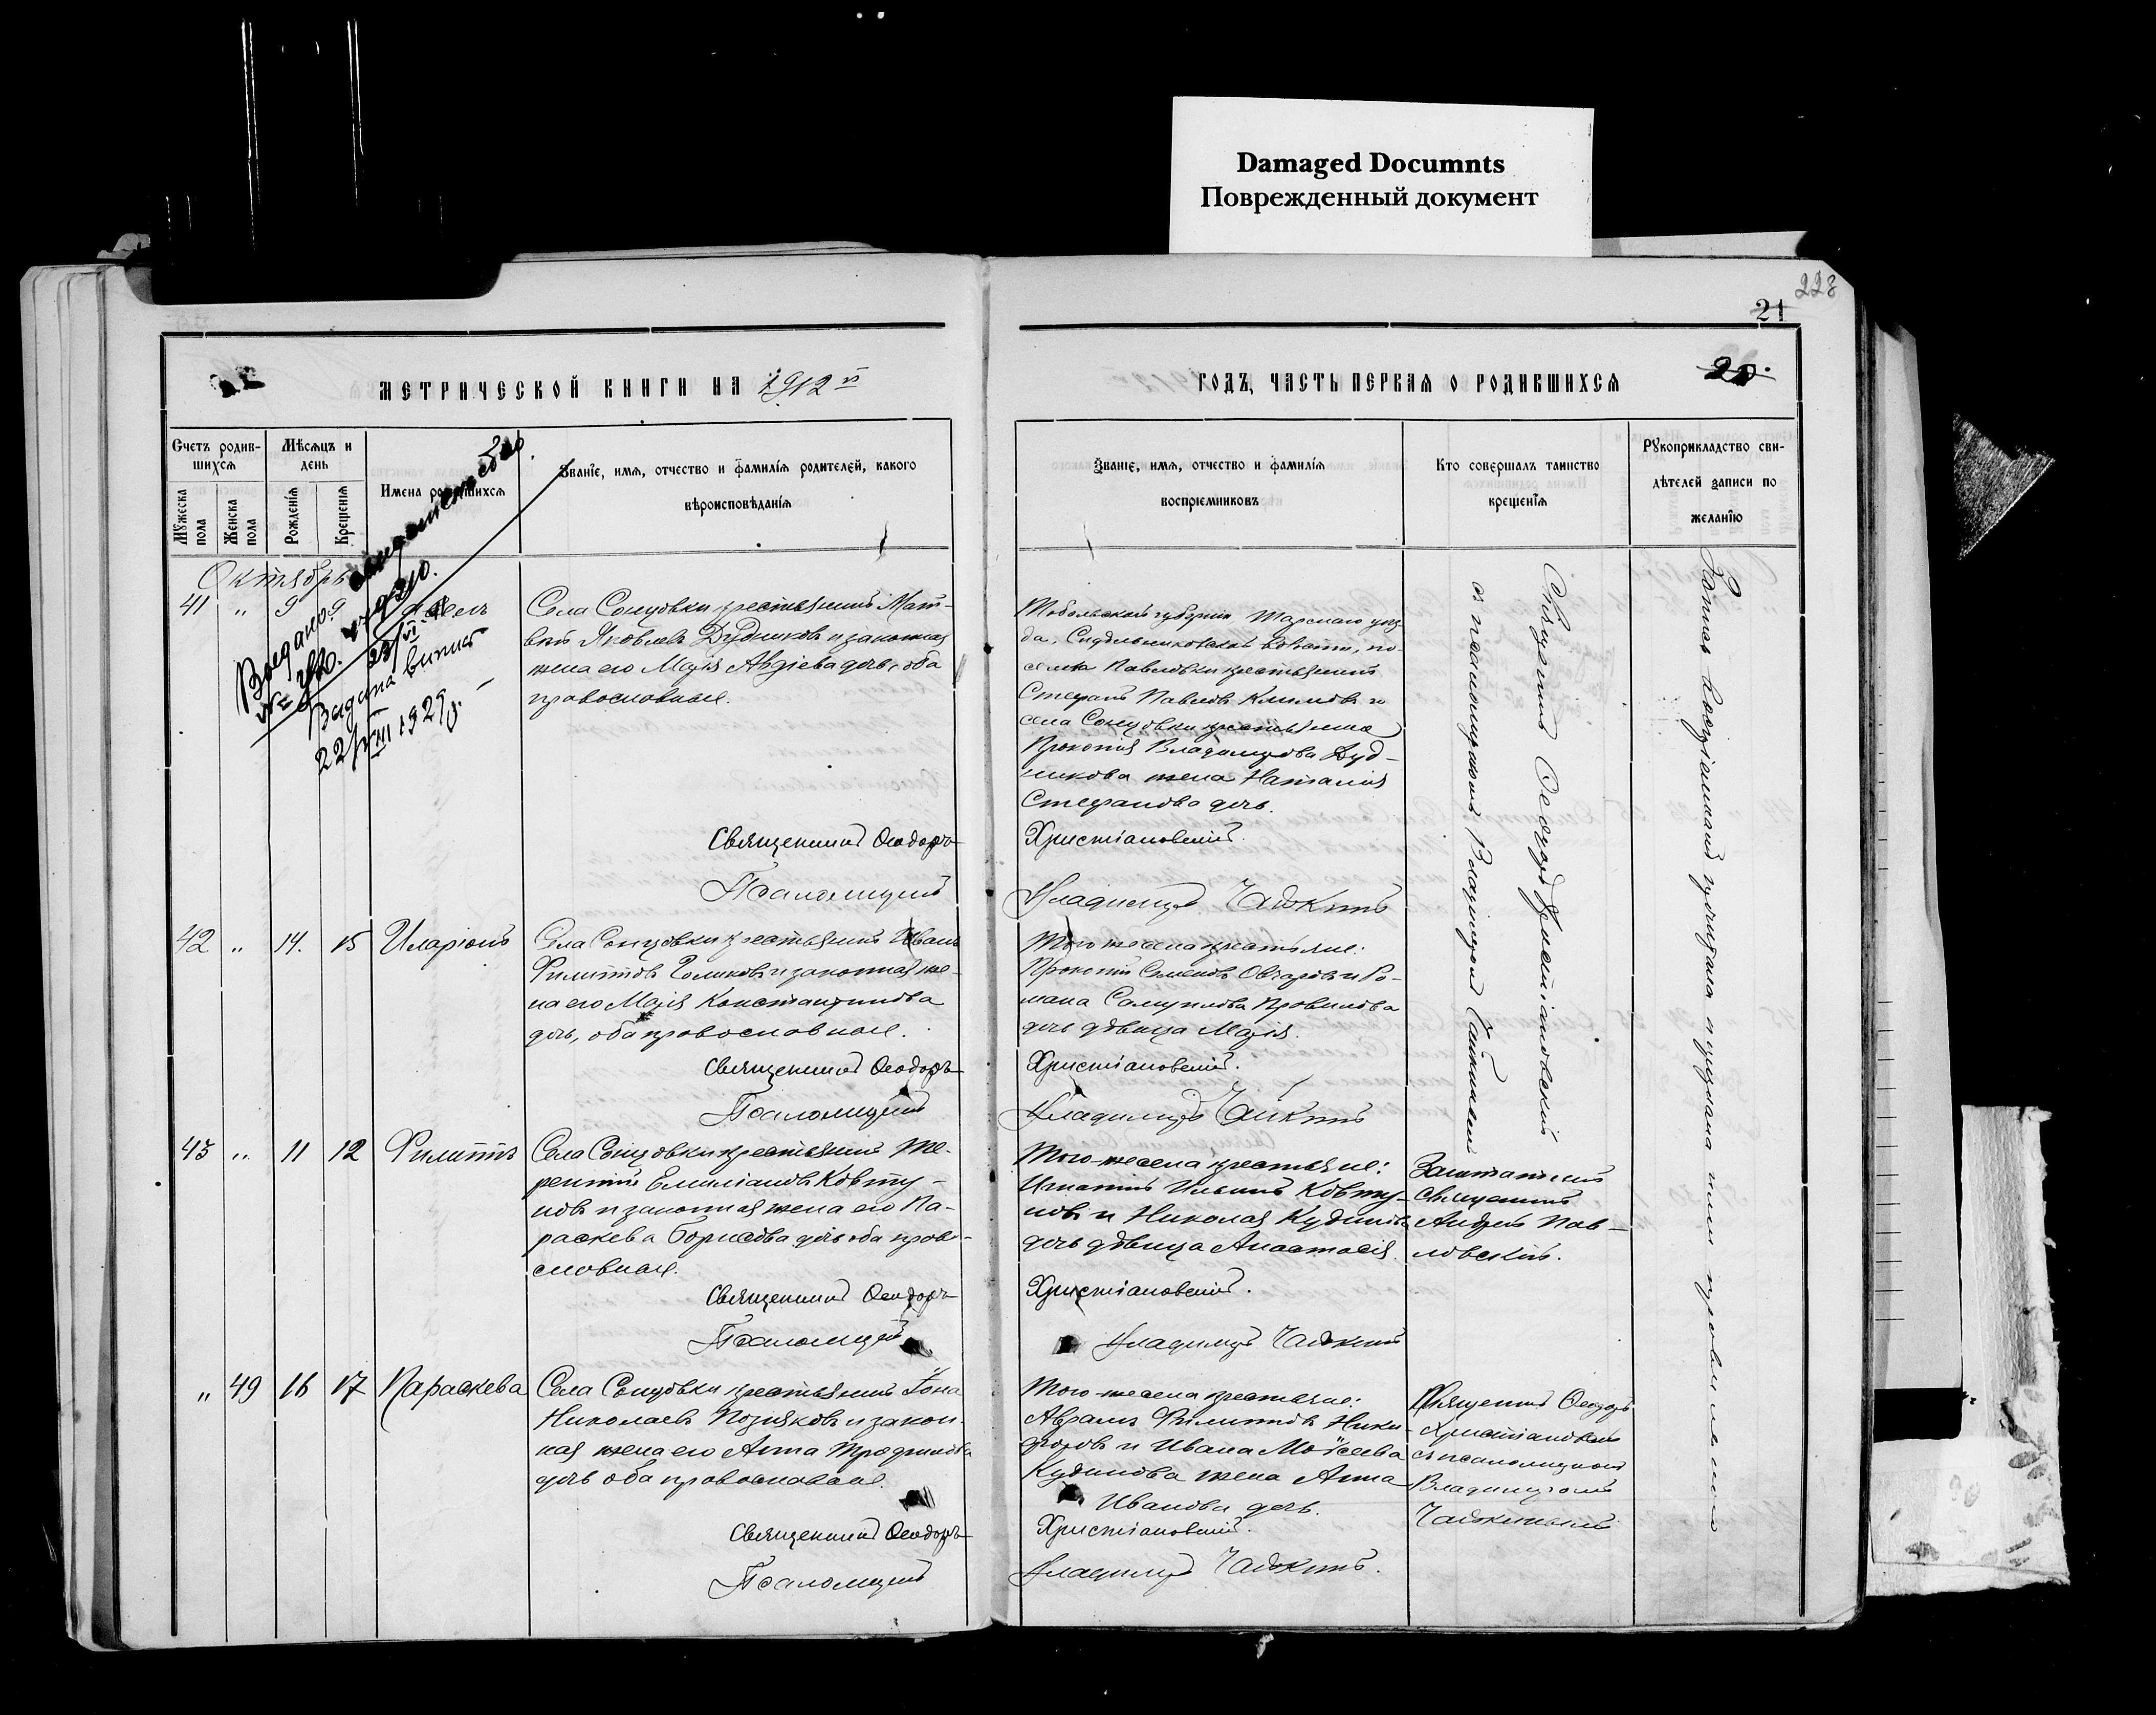 Damaged Documnts
Поврежденный документ
228
21
МЕТРИЧЕСКОЙ КНИГИ НА 1912 й
ГОДЪ, ЧАСТЬ ПЕРВАЯ О РОДИВШИХСЯ
20.
Счетъ родив-
шихся
Мужеска
пола
Женска
пола
Мѣсяцъ и
день
Рожденія
Крещенія
Имена родившихся
Званіе, имя, отчество и фамилія родителей, какого
вѣроисповѣданія
Званіе, имя, отчество и фамилія
воспріемниковъ
Кто совершалъ таинство
крещенія
Рукоприкладство сви-
дѣтелей записи по
желанію
Октябрь
41 " 9 9 Павелъ
Выдано
Выдана выпись
22/VIII 1929 г.
Села Сонцовки крестьянинъ Мат-
вѣй Яковлевъ Дудниковъ и законная
жена его Марія Авдіева дочь, оба
православные.
Священникъ Ѳеодоръ
Псаломщикъ
Тобольской губерніи Тарскаго уѣз
да, Седельниковской волости, по-
селка Павловки крестьянинъ
Стефанъ Павловъ Климовъ и
села Сонцовки крестьянина
Прокопія Владимірова Дуд-
никова жена Наталія
Стефанова дочь.
Христіановскій.
Владиміръ Чайкинъ
Священникъ Ѳеодоръ Христіановскій
съ псаломщикомъ Владиміромъ Чайкинымъ
42 " 14. 15 Иларіонъ
Села Сонцовки крестьянинъ Иванъ
Филипповъ Голиковъ и законная же-
на его Марія Константинова
дочь, оба православные.
Священникъ Ѳеодоръ
Псаломщикъ
Того же села крестьяне:
Прокопій Семеновъ Овчаровъ и Ро-
мана Самуилова Провилова
дочь дѣвица Марія.
Христіановскій.
Владиміръ Чайкинъ
43 " 11 12 Филиппъ
Села Сонцовки крестьянинъ Те-
рентій Емиліановъ Ковту-
новъ и законная жена его Па-
раскева Борисова дочь оба право-
славные.
Священникъ Ѳеодоръ
Псаломщикъ
Того же села крестьяне:
Игнатій Ильинъ Ковту-
новъ и Николая Кудинова
дочь дѣвица Анастасія.
Христіановскій.
Владиміръ Чайкинъ
Заштатный
священникъ
Андрей Пав-
ловскій.
" 49 16 17 Параскева
Села Сонцовки крестьянинъ Іона
Николаевъ Позняковъ и закон-
ная жена его Анна Трофимова
дочь оба православные.
Священникъ Ѳеодоръ
Псаломщикъ
Того же села крестьяне:
Авраамъ Филипповъ Ники-
форовъ и Ивана Моѵсеева
Кудинова жена Анна
Иванова дочь.
Христіановскій.
Владиміръ Чайкинъ.
Священникъ Ѳеодоръ
Христіановскій
съ псаломщикомъ
Владиміромъ
Чайкинымъ